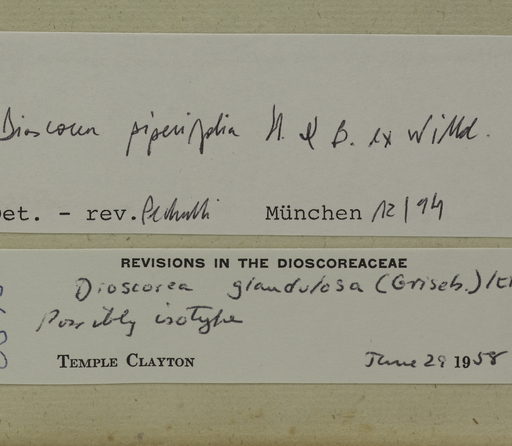 Dioscorea piperifolia H. & B. ex Willd.
Det. - rev. Pedralli München 12/94
REVISIONS IN THE DIOSCOREACEAE
Dioscorea glandulosa (Griseb.)
Possibly isotype
TEMPLE CLAYTON June 29 1958